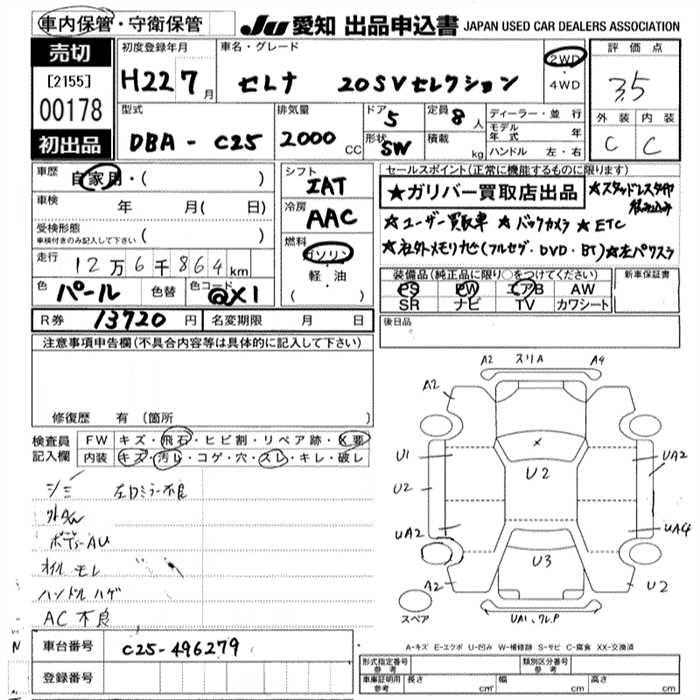 車内保管・守衛保管
JU 愛知 出品申込書 JAPAN USED CAR DEALERS ASSOCIATION
売切
[2155]
00178
初出品
初度登録年月
H22 7月
車名・グレード
セレナ 20SVセレクション
2WD
・
4WD
評価点
3.5
外装 内装
C C
型式
DBA-C25
排気量
2000 CC
ドア 5
形状 SW
定員 8人
積載 kg
ディーラー・並行
モデル年式 年
ハンドル 左・右
車歴 自家用・( )
車検 年 月( 日)
受検形態
車検付きのみ記入して下さい ( )
走行 12万6千864km
色 パール 色替 色コード @X1
シフト
IAT
冷房
AAC
燃料
ガソリン
軽・油
( )
セールスポイント(正常に機能するものに限ります)
★ガリバー買取店出品 ★スタッドレスタイヤ
積込み
★ユーザー買取車 ★バックカメラ ★ETC
★社外メモリナビ(フルセグ・DVD・BT)★左パワスラ
装備品(純正品に限り○をつけてください) 新車保証書
PS PW エアB AW
SR ナビ TV カワシート
R券 13720円 名変期限 月 日
後日品
注意事項申告欄(不具合内容等は具体的に記入して下さい)
修復歴 有(箇所
検査員記入欄
FW キズ・飛石・ヒビ割・リペア跡・X要
内装 キズ・汚レ・コゲ・穴・スレ・キレ・破レ
シミ 左ロミラー不良
外タタ
ボデーAU
オイルモレ
ハンドルハゲ
AC不良
A2 スリA A4
A2
U1
U2
UA2
A2
U2
U3
UA2
UA4
U2
UA1、ワレP
スペア
A-キズ E-エクボ U-凹み W-補修跡 S-サビ C-腐食 XX-交換済
N 車台番号 C25-496279
登録番号
形式指定番号 参考 類別区分番号 参考
車庫証明用 参考 長さ cm 幅 cm 高さ cm